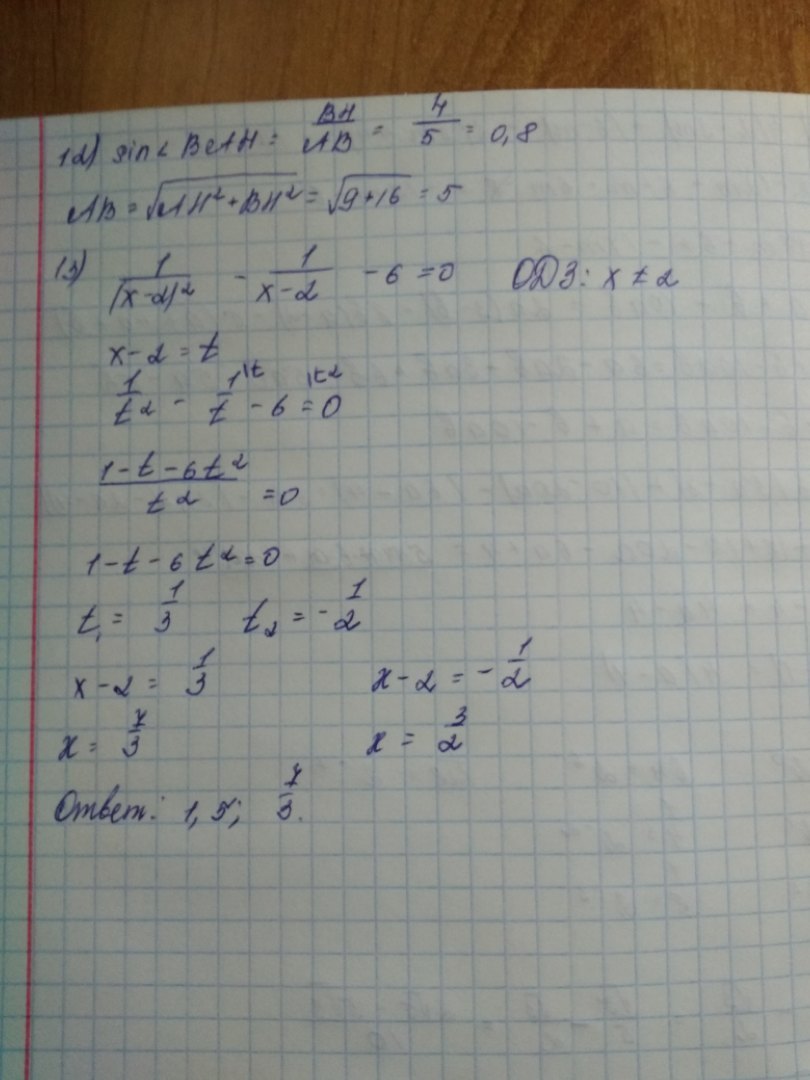 12) sin∠BAH = BH/AB = 4/5 = 0,8
AB = √(AH²+BH²) = √(9+16) = 5
13) 1/(x-2)² - 1/(x-2) - 6 = 0 ОДЗ: x ≠ 2
x-2 = t
1/t² - 1\t/t - 6\t² = 0
(1-t-6t²)/t² = 0
1-t-6t² = 0
t₁ = 1/3 t₂ = -1/2
x-2 = 1/3 x-2 = -1/2
x = 7/3 x = 3/2
Ответ: 1,5; 7/3.